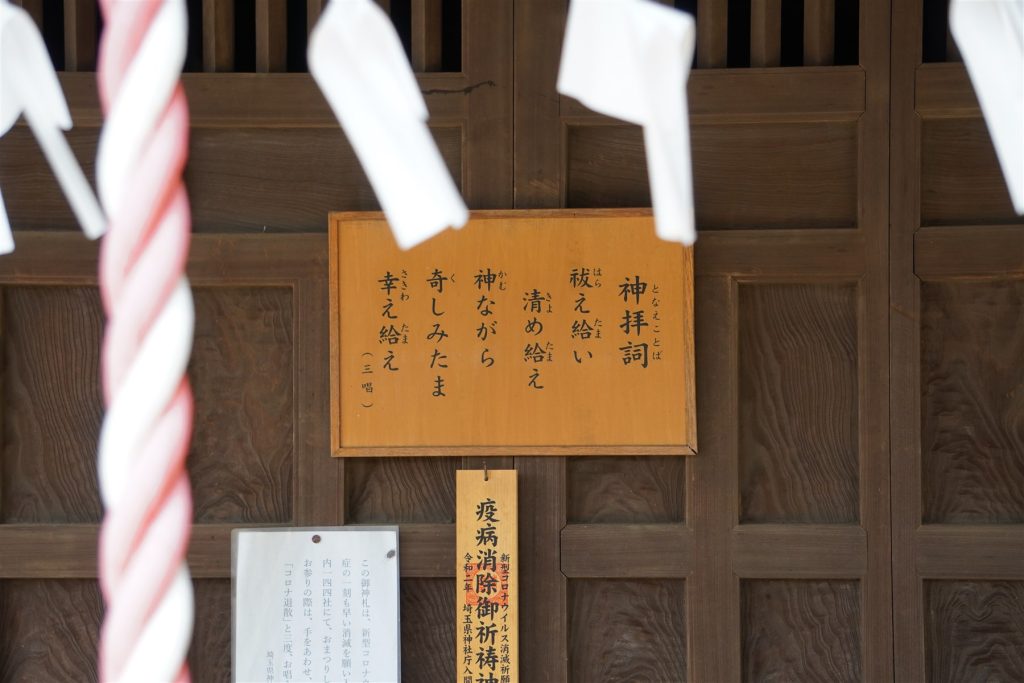 神拝詞
となえことば
祓え給い
はら
たま
清め給え
きよ
たま
神ながら
かむ
奇しみたま
く
幸え給え
さきわ
たま
（三唱）
新型コロナウイルス消滅祈願
疫病消除御祈祷神
令和二年 埼玉県神社庁入間
この御神札は、新型コロナウ
症の一刻も早い消滅を願い
内一四四社にて、おまつりし
お参りの際は、手をあわせ、
「コロナ退散」と三度、お唱
埼玉県神